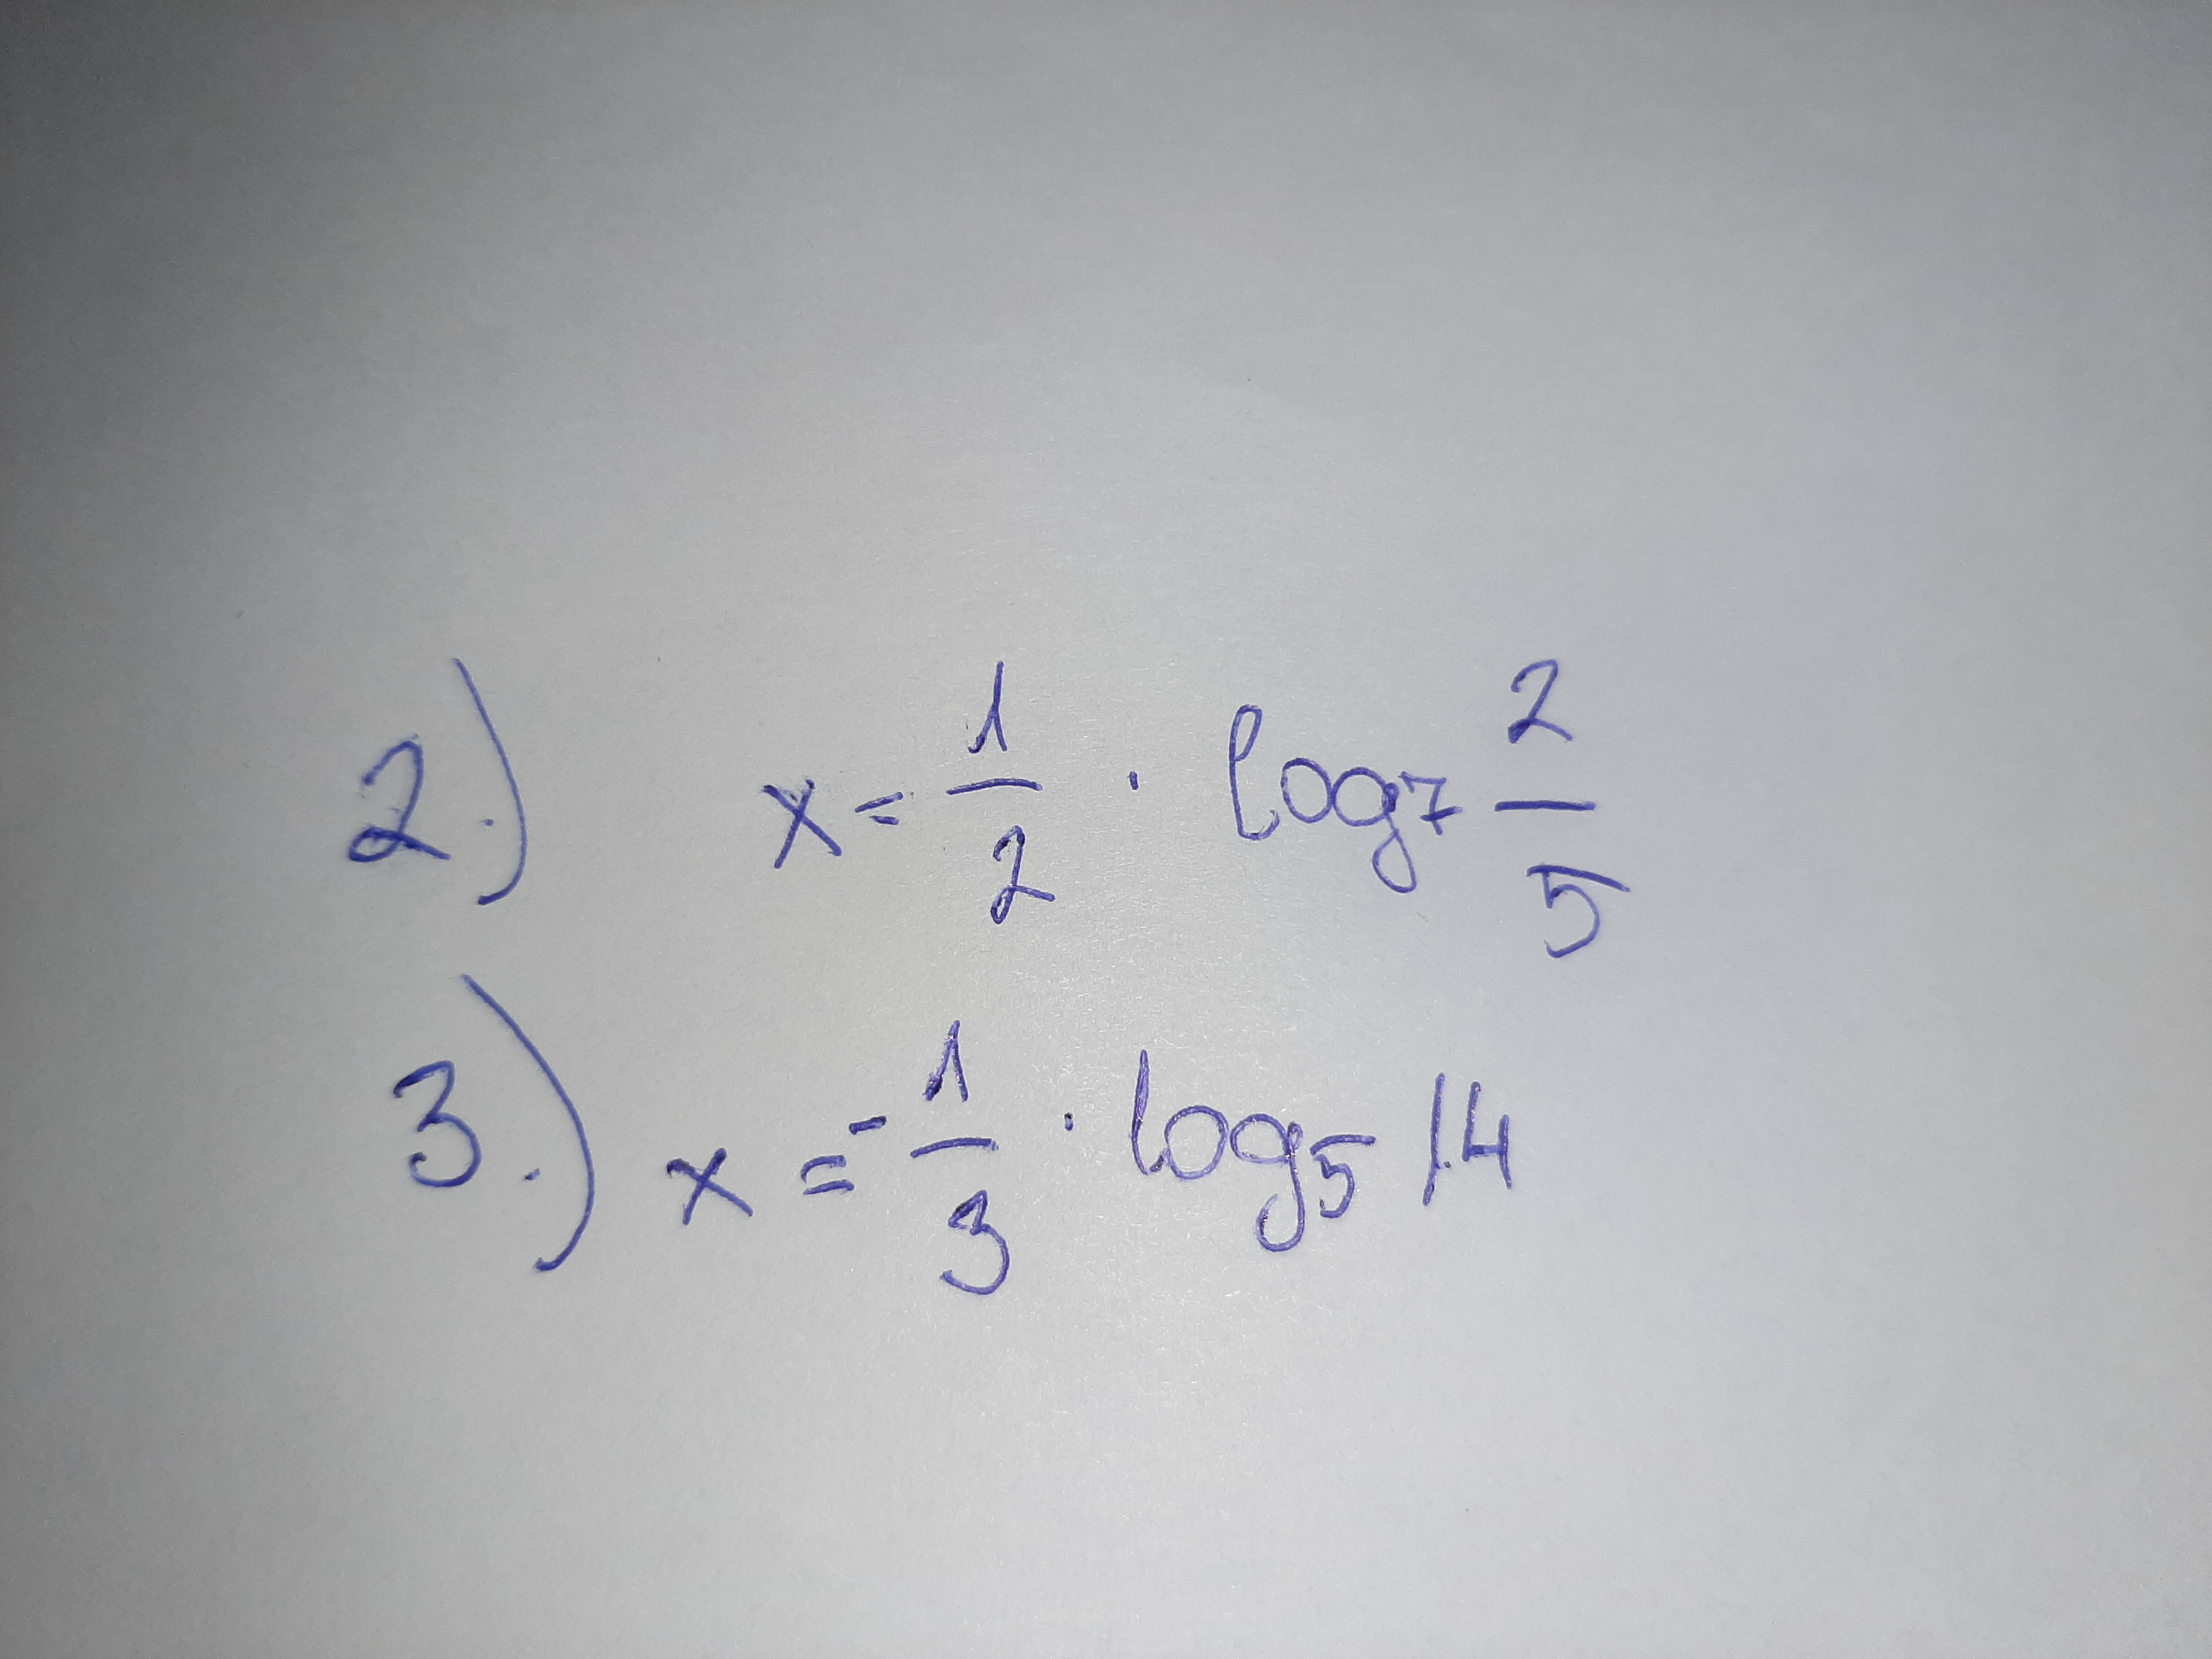 2.) x = 1/2 · log₇ 2/5
3.) x = -1/3 · log₅ 14